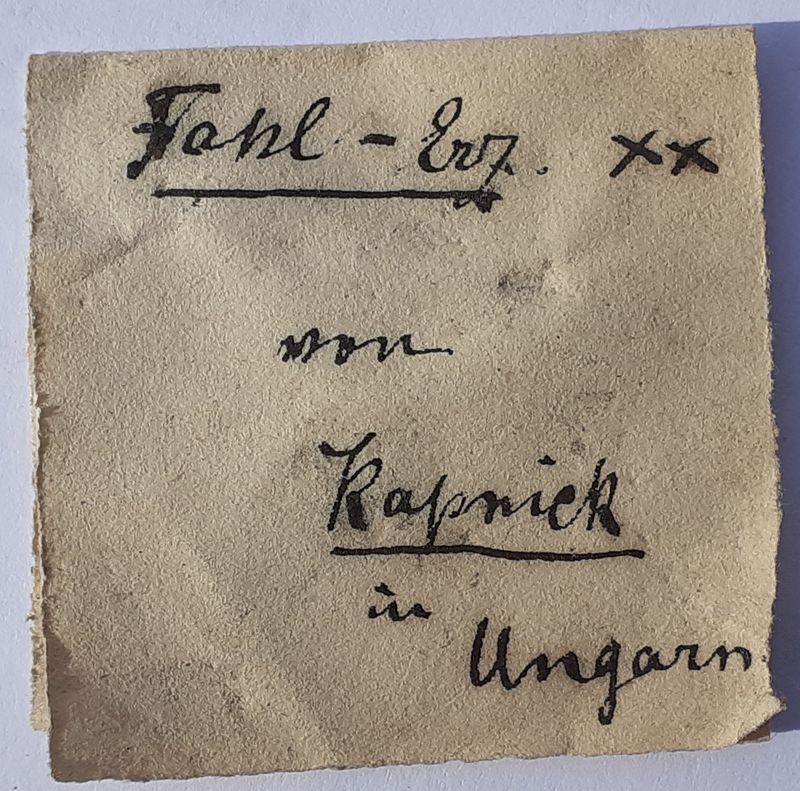 Fahl - Erz. xx
von
Kapnick
in
Ungarn